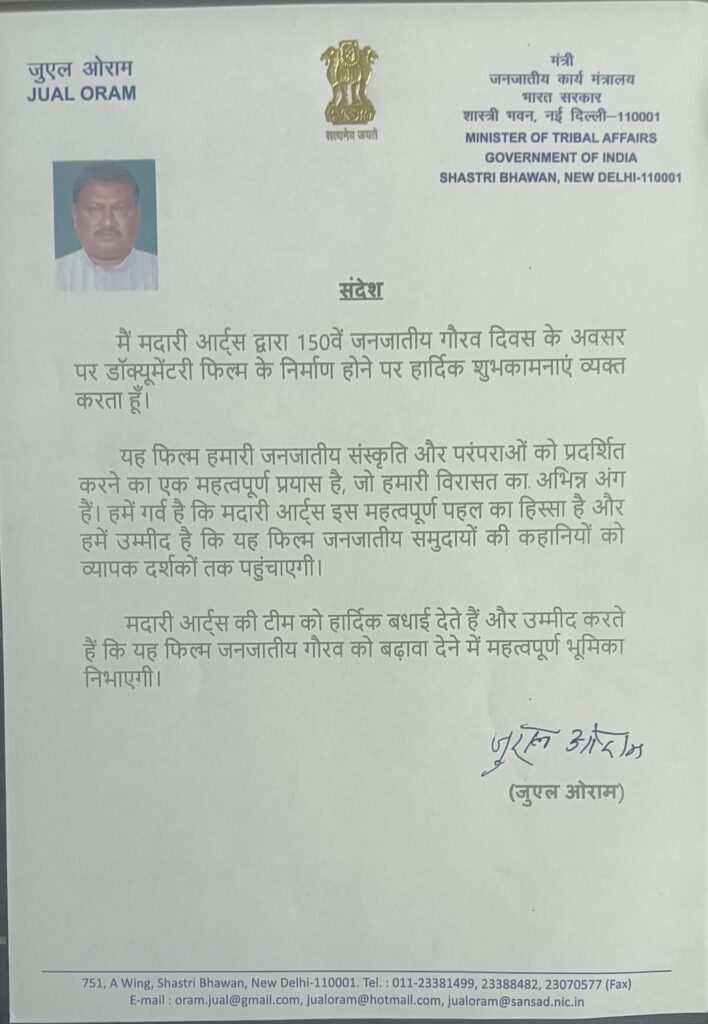 जुएल ओराम
JUAL ORAM
सत्यमेव जयते
मंत्री
जनजातीय कार्य मंत्रालय
भारत सरकार
शास्त्री भवन, नई दिल्ली–110001
MINISTER OF TRIBAL AFFAIRS
GOVERNMENT OF INDIA
SHASTRI BHAWAN, NEW DELHI-110001
संदेश
मैं मदारी आर्ट्स द्वारा 150वें जनजातीय गौरव दिवस के अवसर
पर डॉक्यूमेंटरी फिल्म के निर्माण होने पर हार्दिक शुभकामनाएं व्यक्त
करता हूँ।
यह फिल्म हमारी जनजातीय संस्कृति और परंपराओं को प्रदर्शित
करने का एक महत्वपूर्ण प्रयास है, जो हमारी विरासत का. अभिन्न अंग
हैं। हमें गर्व है कि मदारी आर्ट्स इस महत्वपूर्ण पहल का हिस्सा है और
हमें उम्मीद है कि यह फिल्म जनजातीय समुदायों की कहानियों को
व्यापक दर्शकों तक पहुंचाएगी।
मदारी आर्ट्स की टीम को हार्दिक बधाई देते हैं और उम्मीद करते
हैं कि यह फिल्म जनजातीय गौरव को बढ़ावा देने में महत्वपूर्ण भूमिका
निभाएगी।
जुएल ओराम
(जुएल ओराम)
751, A Wing, Shastri Bhawan, New Delhi-110001. Tel. : 011-23381499, 23388482, 23070577 (Fax)
E-mail : oram.jual@gmail.com, jualoram@hotmail.com, jualoram@sansad.nic.in